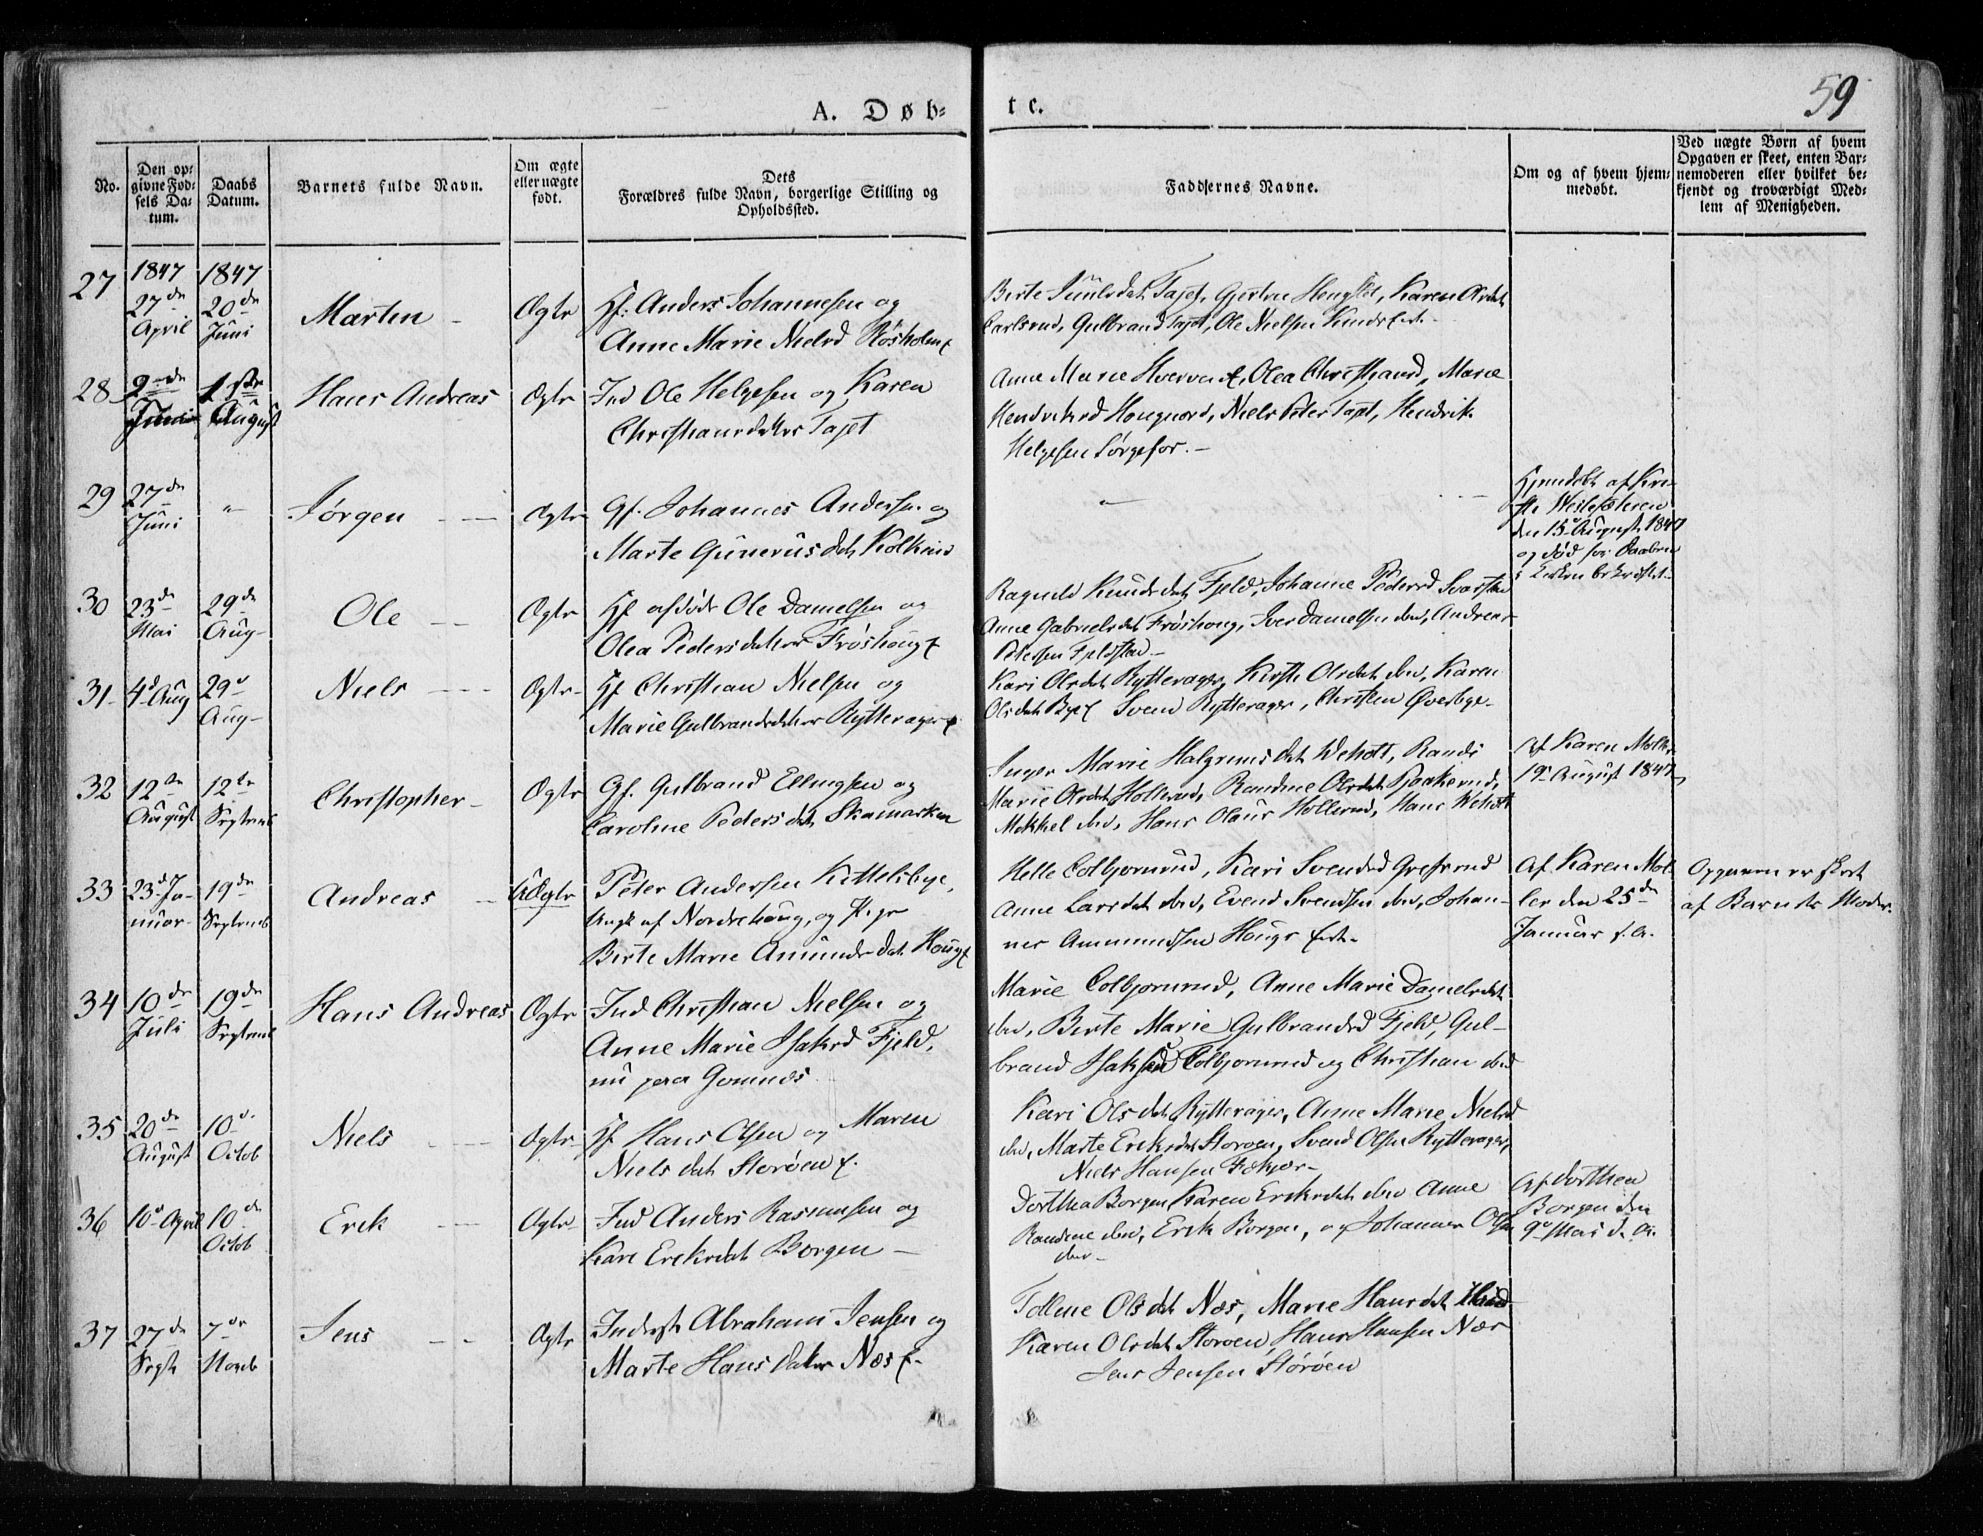 59
A. Døb-
te.
No.
Den op-
givne Fød-
sels Da-
tum.
Daabs
Datum.
Barnets fulde Navn.
Om ægte
eller uægte
født.
Dets
Forældres fulde Navn, borgerlige Stilling og
Opholdssted.
Faddernes Navne.
Om og af hvem hjem-
medøbt.
Ved uægte Børn af hvem
Opgaven er skeet, enten Bar-
nemoderen eller hvilket be-
kjendt og troværdigt Med-
lem af Menigheden.
1847 1847
27
27de April
20de Juni
Marten
Ægte
Hf: Anders Johannesen og
Anne Marie Nielsd
Karen
Gulbrand Tajet, Ole Nielsen
28
2den Juni
1ste August
Hans Andreas
Ægte
Ind Ole Helgesen og Karen
Christiansdatter Tajet
Anne Marie Olea Christiansd, Marie
Hendriksd Niels Peter Tajet, Hendrik
Helgesen
29
27de Juni
"
Jørgen
Ægte
Gf. Johannes Andersen og
Marte Gunerusdat
"
Hjemdøbt af
den 15de August 1847
og død før Daaben
i Kirken bekræftet
30
23de Mai
29de Aug
Ole
Ægte
Hf afdøde Ole Danielsen og
Olea Pedersdatter Frøshoug
Ragnild Knudsdat Fjeld, Johanne Pedersd
Anne Gabrielsdat Frøshoug, Iver Danielsen ibd, Andreas
Petersen Fjeldstad
31
4d Aug
29d Aug
Niels
Ægte
Hf Christian Nielsen og
Marie Gulbrandsdatter Rytterager
Kari Olsdat Rytterager, Kirsti Olsdat ibd, Karen
Olsdat Bye Svend Rytterager, Christen Øverbye
32
12te August
12te Septemb
Christopher
Ægte
Gf. Gulbrand Ellingsen og
Caroline Pedersdat Skamarken
Inger Marie Weholt, Randi
Marie Olsdat Hollerud, Randine Olsdat
Mikkel ibd, Hans Olaus Hollerud, Hans Weholt
Af Karen
19de August 1847
33
23de Januar
19de Septemb
Andreas
Uægte
Peter Andersen Kittelsbye,
Ungk af Norderhoug, og Pige
Birte Marie Amundsdat Houg
Helle Colbjørnrud, Kari Svendsd
Anne Larsdat ibd, Evend Svendsen ibd, Johan-
nes Ammundsen Hougs
Af Karen Møl-
ler den 25de
Januar
Opgaven er skeet
af Barnets Moder.
34
10de Juli
19de Septemb
Hans Andreas
Ægte
Ind Christian Nielsen og
Anne Marie Isaksd Fjeld,
nu paa Gomnæs
Marie Colbjørnrud, Anne Marie Danielsdat
ibd, Birte Marie Gulbrandsd Fjeld, Gul-
brand Isaksen Colbjørnrud og Christian ibd
35
20de August
10d Octob
Niels
Ægte
Hf Hans Olsen og Maren
Nielsdat Storøen
Kari Olsdat Rytterager, Anne Marie Nielsd
ibd, Marte Eriksdat Storøen, Svend Olsen Rytterager,
Niels Hansen
36
10d April
10de Octob
Erik
Ægte
Ind Anders Rasmusen og
Kari Eriksdat Borgen
Dorthea Borgen, Karen Eriksdat ibd Anne
Randine ibd, Erik Borgen, og Johannes Olsen
ibd
Af Dorthea
Borgen den
9d Mai d. A.
37
27de Sept
7de Novb
Jens
Ægte
Inderst Abraham Jensen og
Marte Hansdatter Næs
Olsdat Næs, Marie Hansdat
Karen Olsdat Storøen, Hans Hansen Næs
Jens Jensen Storøen